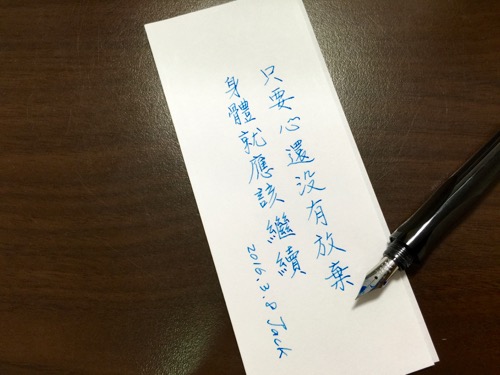 只要心還没有放棄
身體就應該繼續
2016.3.8 Jack